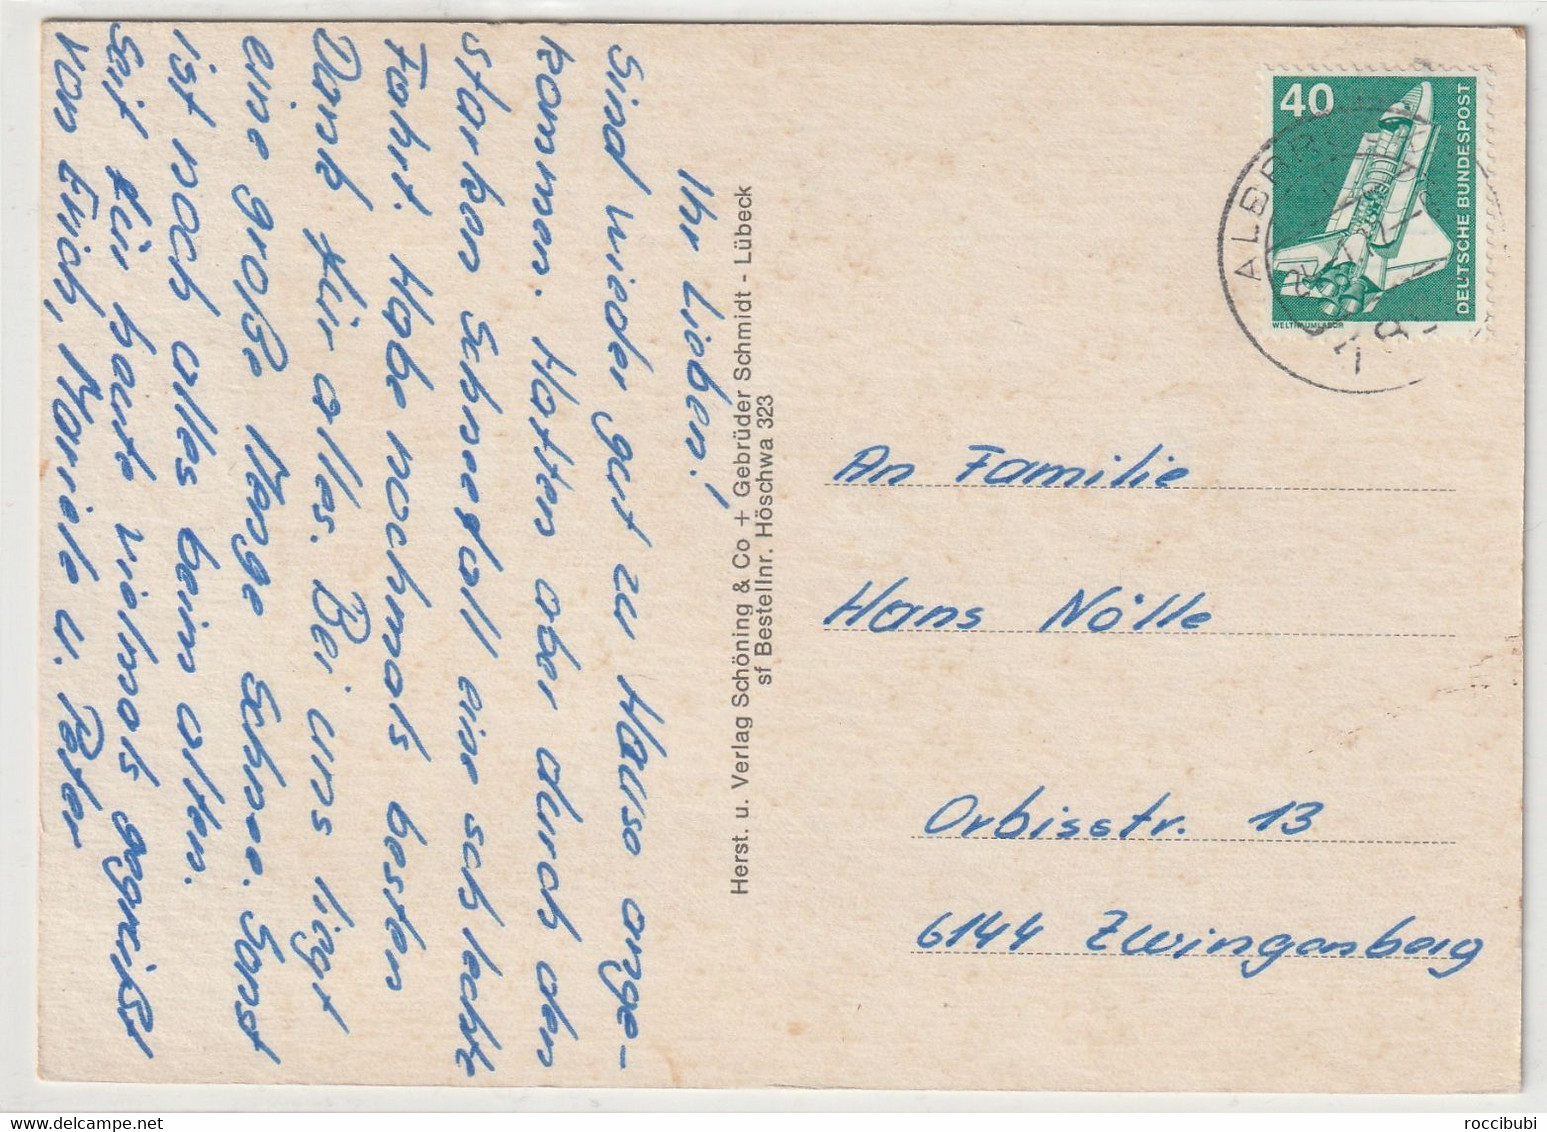 Ihr Lieben!
Sind wieder gut zu Hause ange-
kommen. Hatten aber durch den
starken Schneefall eine schlechte
Fahrt. Habe nochmals besten
Dank für alles. Bei uns liegt
eine große Menge Schnee. Sonst
ist noch alles beim alten.
Seit für heute vielmals gegrüßt
von Erich, Mariele u. Peter
Herst. u. Verlag Schöning & Co + Gebrüder Schmidt - Lübeck
sf Bestellnr. Höschwa 323
40
DEUTSCHE BUNDESPOST
WELTRAUMLABOR
An Familie
Hans Nölle
Orbisstr. 13
6144 Zwingenberg
roccibubi